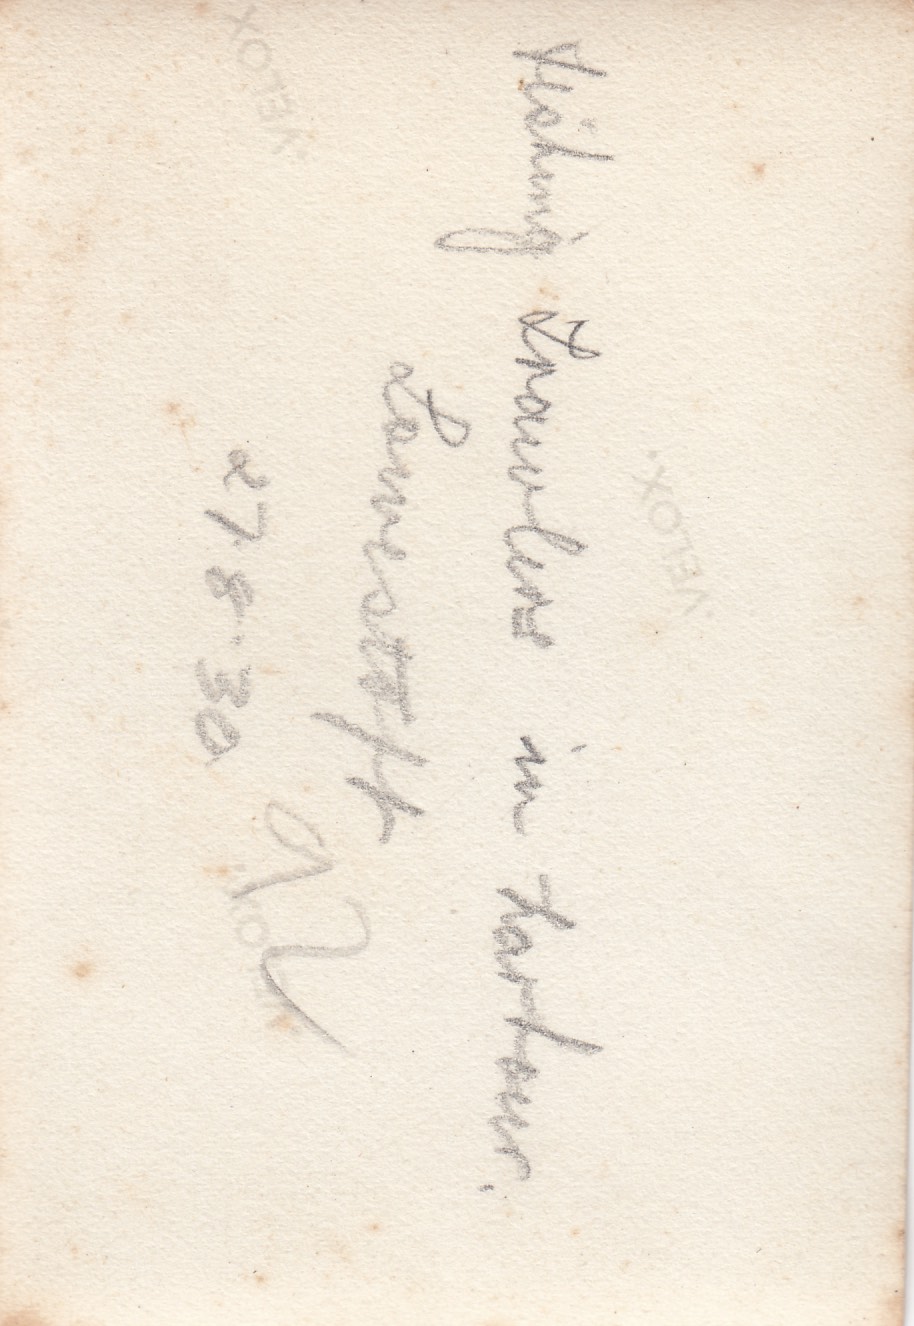 Fishing Trawlers in harbour.
Lowestoft
27-8-30
VELOX
VELOX